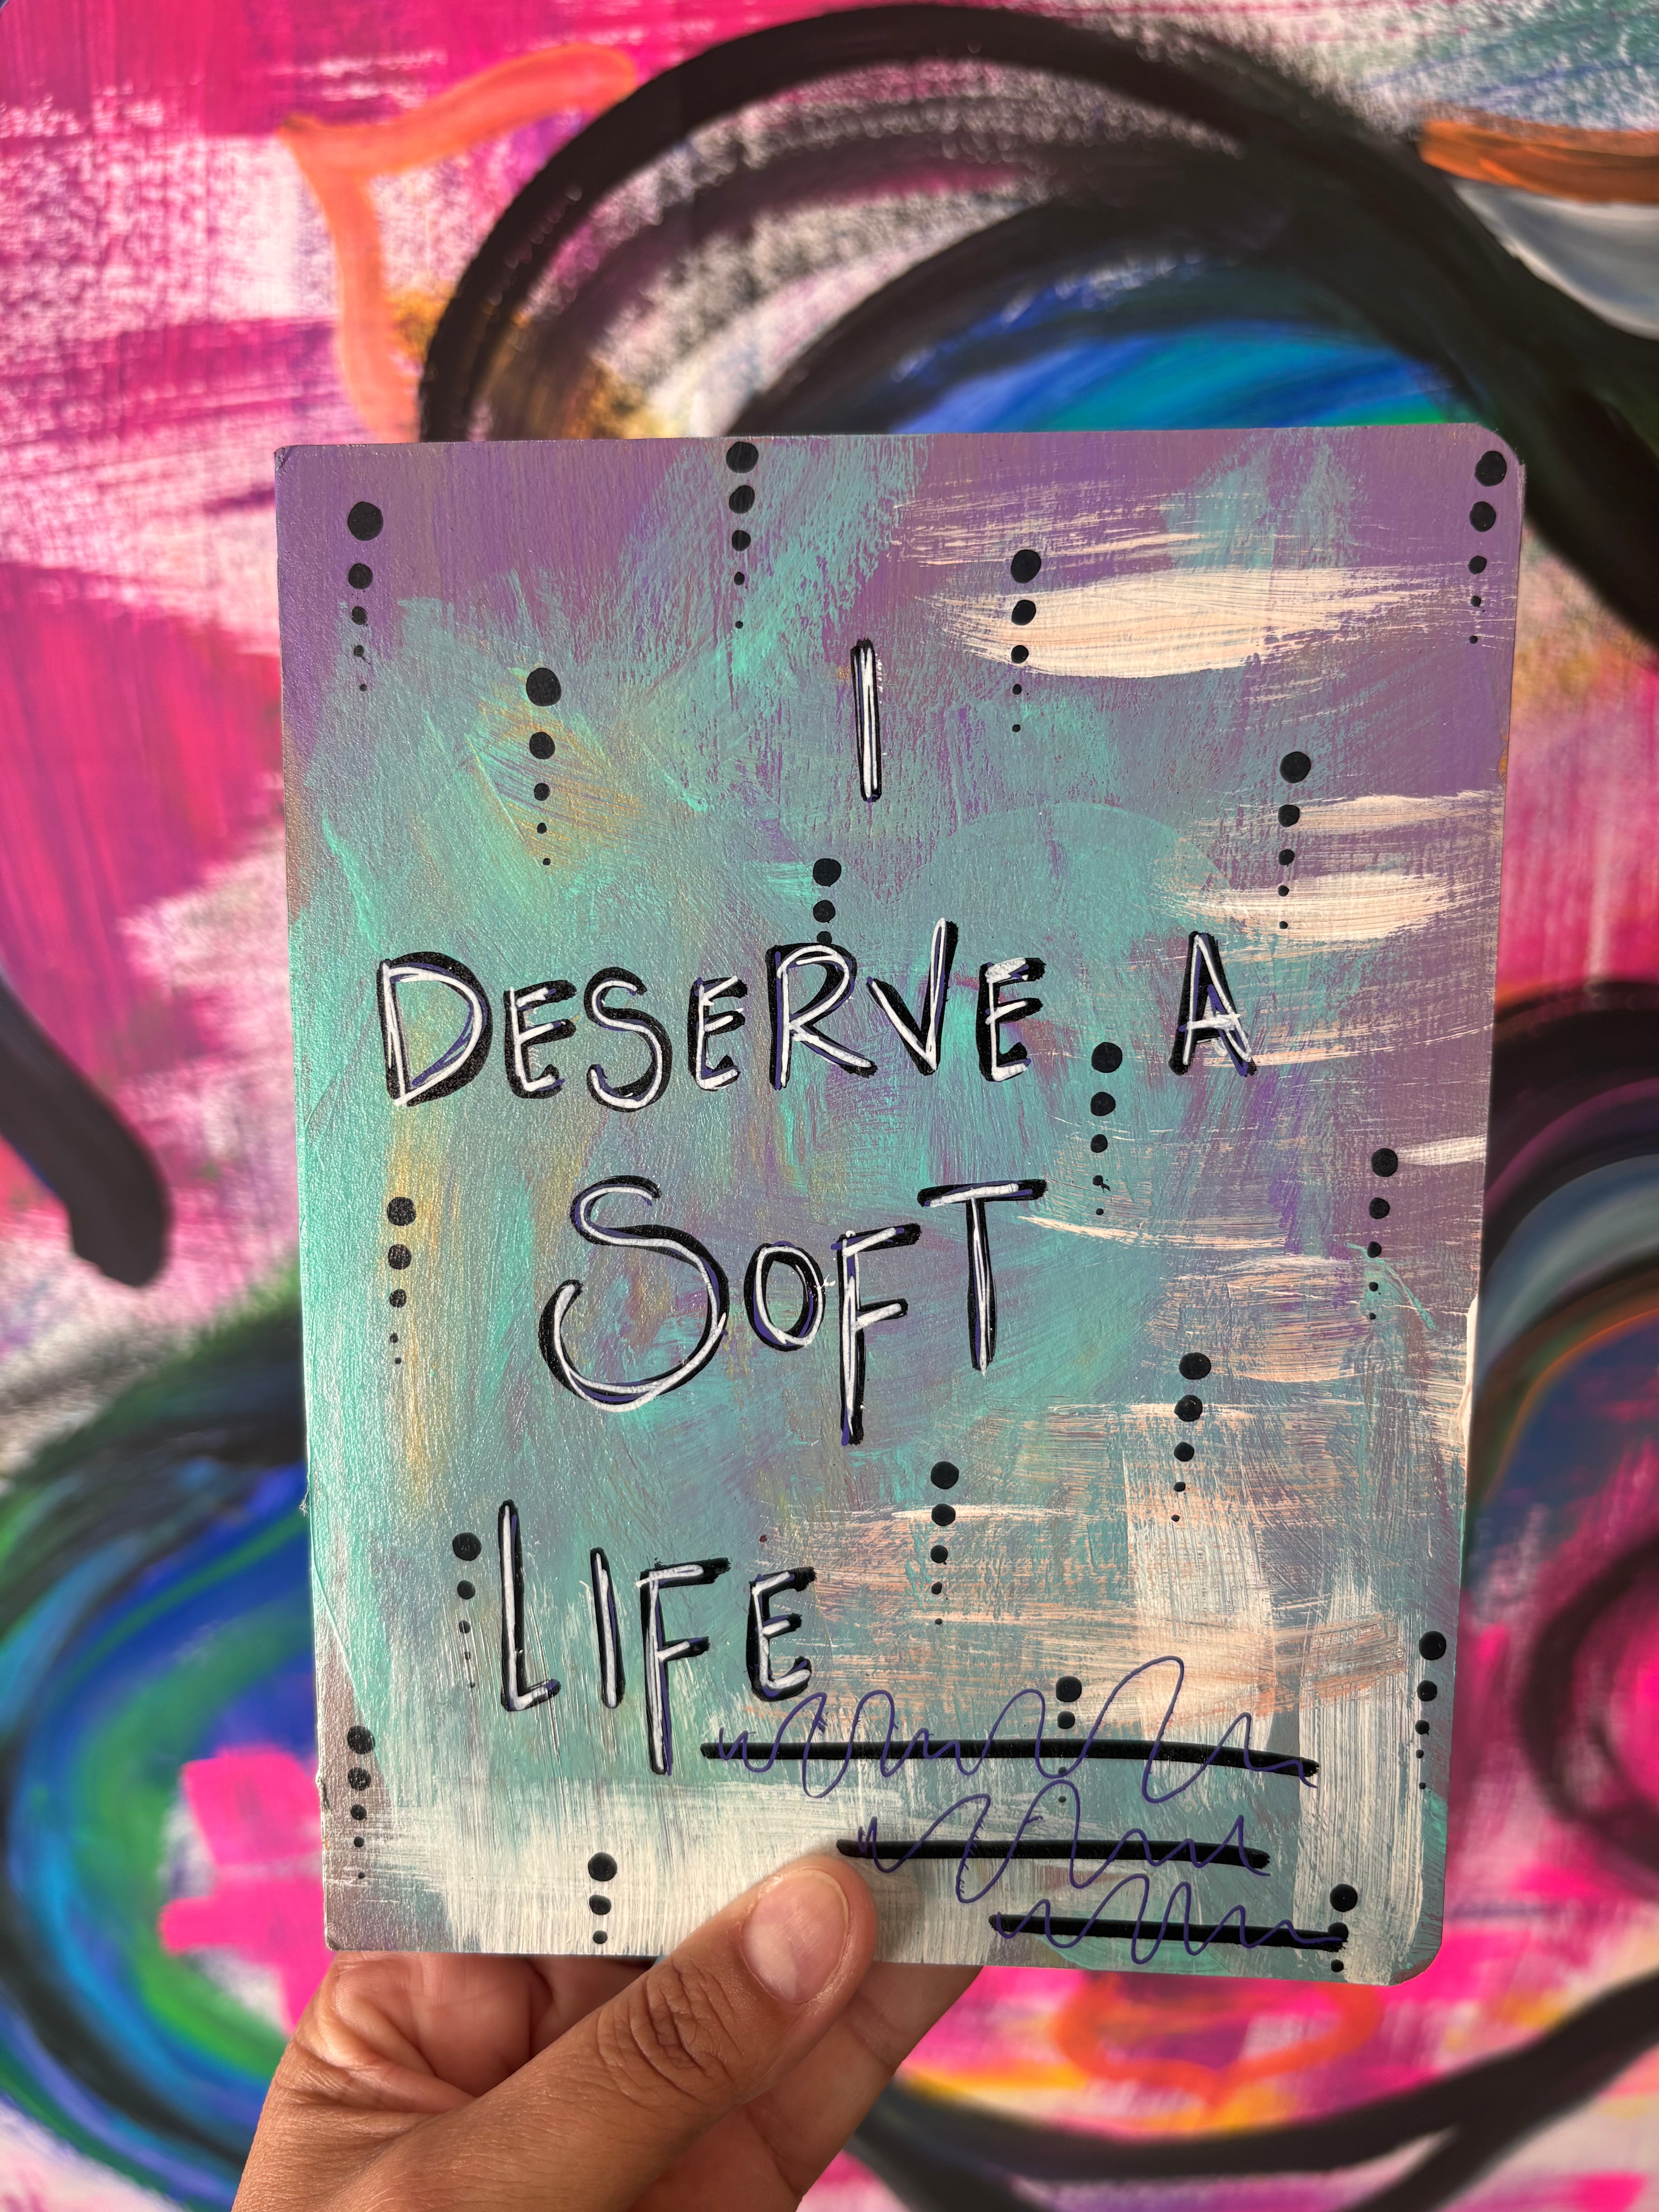 I
DESERVE A
SOFT
LIFE